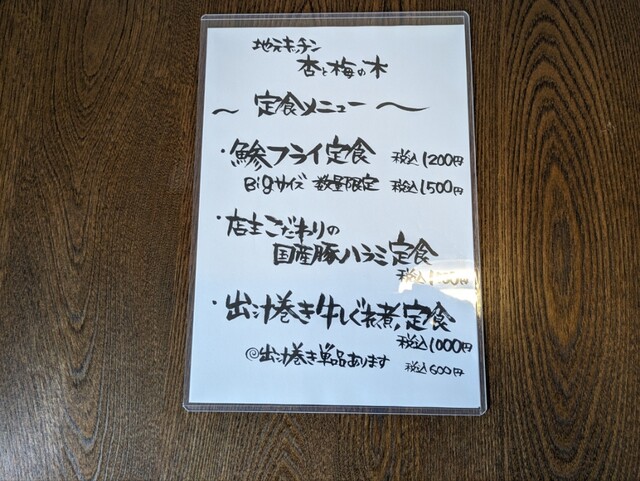 地元キッチン
杏と梅の木
〜 定食メニュー 〜
・鯵フライ定食 税込1200円
Bigサイズ 数量限定 税込1500円
・店主こだわりの
国産豚ハラミ定食
税込
・出汁巻き牛しぐれ煮定食
税込1000円
◎出汁巻き単品あります 税込600円